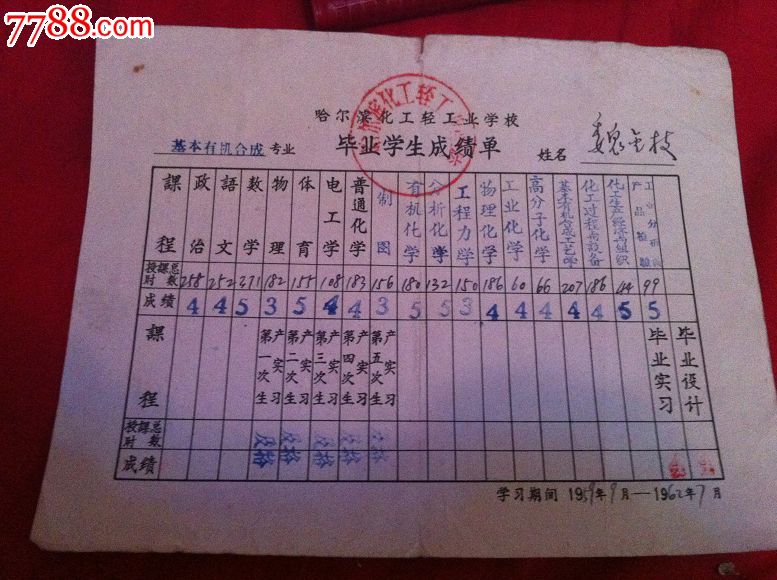 7788.com
哈尔滨化工轻工业学校
基本有机合成 专业 毕业学生成绩单 姓名 魏玉枝
課程 政治 語文 数学 物理 体育 电工学 普通化学 制图 有机化学 分析化学 工程力学 物理化学 工业化学 高分子化学 基本有机合成工艺学 化工过程与设备 化工生产经济与组织 工业分析 产品检驗
授課总时数 258 252 271 182 155 108 183 156 180 132 150 186 60 66 207 186 44 99
成绩 4 4 5 3 5 4 4 3 5 5 3 4 4 4 4 4 5 5
課程 第一次生产实习 第二次生产实习 第三次生产实习 第四次生产实习 第五次生产实习 毕业实习 毕业设计
授課总时数 及格 及格 及格 及格 及格
成绩
学习期间 1959年9月—1962年7月